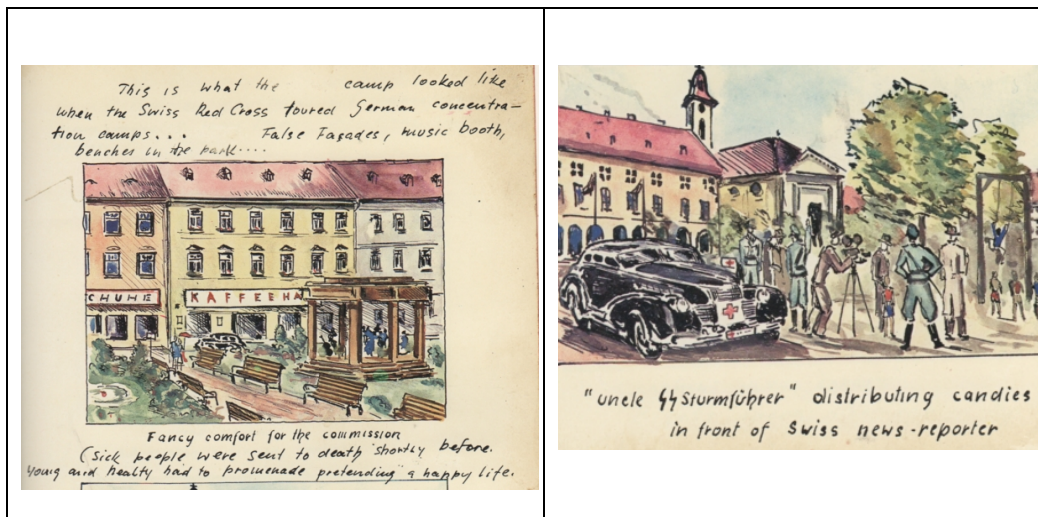 This is what the camp looked like
when the Swiss Red Cross toured German concentra-
tion camps... False Façades, music booth,
benches in the park....
CHUHE
KAFFEEHA
Fancy comfort for the commission
(Sick people were sent to death shortly before.
young and healty had to promenade pretending a happy life.
"uncle SS Sturmführer" distributing candies
in front of Swiss news-reporter